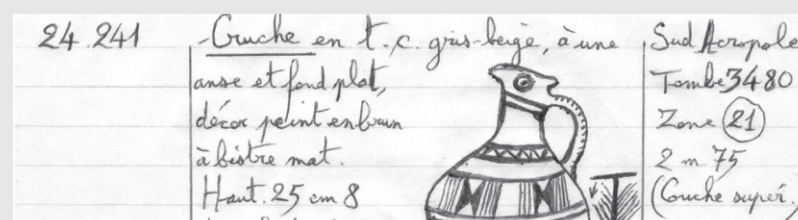 24.241
-Cruche en t.c. gris-beige, à une
anse et fond plat,
décor peint en brun
à bistre mat.
Haut. 25 cm 8
Sud Acropole
Tombe 3480
Zone 21
2 m 75
(Couche supér.